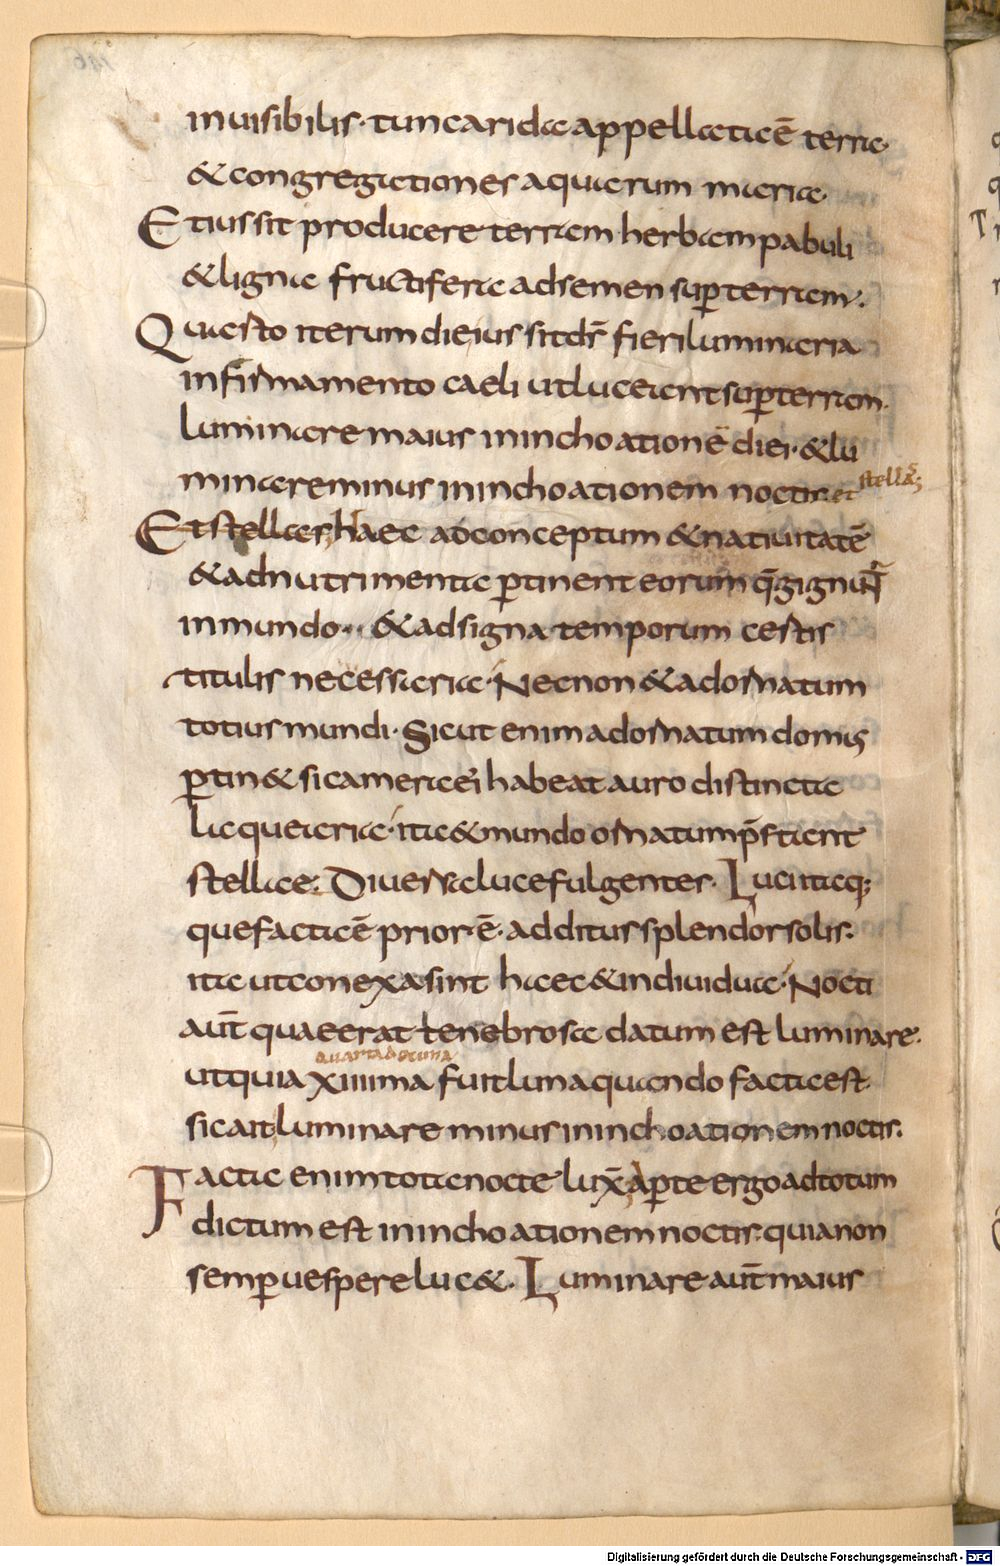 inuisibilis · tunc arida appellata ē terra ·
& congregationes aquarum maria ·
Et iussit producere terram herbam pabuli
& ligna fructifera ad semen sup̄ terram ·
Quarto iterum die iussit dr̄ fieri luminaria
in firmamento caeli ut luceant sup̄ terram ·
luminare maius in inchoationē diei · & lu
minare minus in inchoationem noctis · et stellas;
Et stellas haec ad conceptum & natiuitatē
& ad nutrimenta ꝑtinent eorum q̄ gignunt̄
in mundo · & ad signa temporum aestis
titulis necessaria · Necnon & ad ornatum
totius mundi · Sicut enim ad ornatum domus
ꝑtin& si camerae habeat auro distincta
laquearia · ita & mundo ornatum p̄stant
stellae · Diuersa luce fulgentes · Luci itaq;
que facta ē prior · ē · additus splendor solis ·
ita ut conexa sint haec & indiuidua · Nocti
aūt quae erat tenebrosa datum est luminare ·
quarta decima
ut quia xiiiima fuit luna quando facta est ·
sic ait luminare minus in inchoationem noctis ·
Facta enim tota nocte lux̄ aꝑte ergo ad totum
dictum est in inchoationem noctis · quia non
semꝑ uespere luc& · Luminare aūt maius
Digitalisierung gefördert durch die Deutsche Forschungsgemeinschaft - DFG